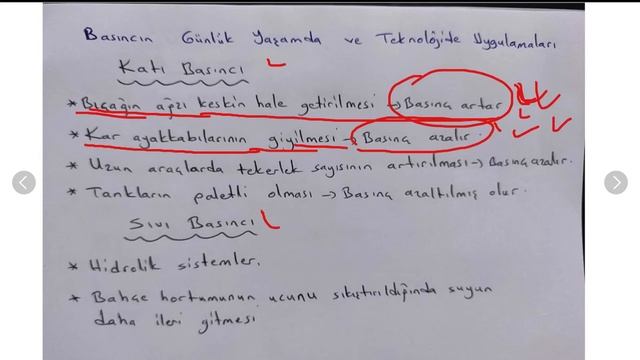 Basıncın Günlük Yaşamda ve Teknolojide Uygulamaları
Katı Basıncı
* Bıçağın ağzı keskin hale getirilmesi → Basınç artar
* Kar ayakkabılarının giyilmesi → Basınç azalır.
* Uzun araçlarda tekerlek sayısının artırılması → Basınç azalır.
* Tankların paletli olması → Basınç azaltılmış olur.
Sıvı Basıncı
* Hidrolik sistemler.
* Bahçe hortumunun ucunu sıkıştırıldığında suyun
daha ileri gitmesi